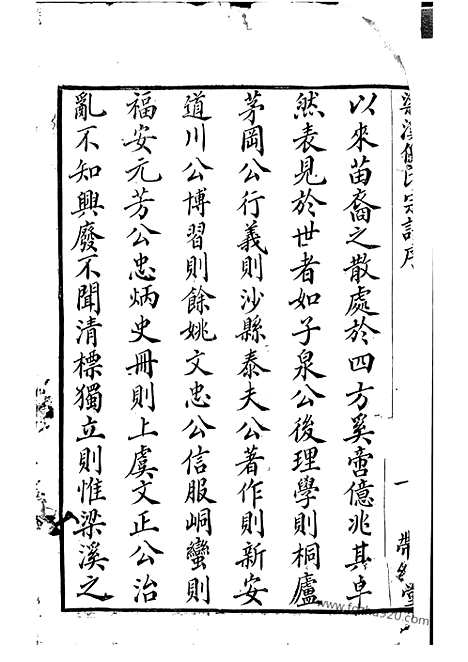 梁溪倪氏宗譜序
一
以來苗裔之散處於四方奚啻億兆其卓
然表見於世者如子泉公後理學則桐廬
茅岡公行義則沙縣泰夫公著作則新安
道川公博習則餘姚文忠公信服峒蠻則
福安元芳公忠炳史冊則上虞文正公治
亂不知興廢不聞清標獨立則惟梁溪之